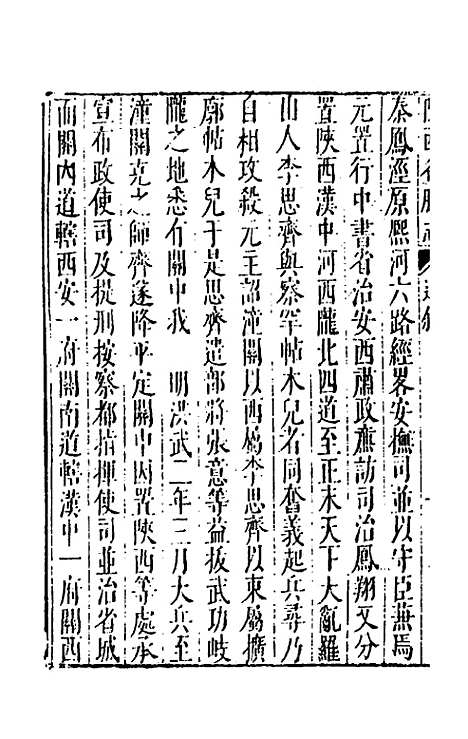 秦鳳涇原熈河六路經畧安撫司並以守臣兼焉
元置行中書省治安西肅政㢘訪司治鳳翔又分
置陜西漢中河西隴北四道至正末天下大亂羅
山人李思齊與察罕帖木兒者同奮義起兵尋乃
自相攻殺元主詔潼關以西屬李思齊以東屬擴
廓帖木兒于是思齊遣部將張意等益拔武功岐
隴之地悉有關中我 明洪武二年三月大兵至
潼關克之師齊遂降平定關中因置陜西等處承
宣布政使司及提刑按察都指揮使司並治省城
而關內道轄西安一府關南道轄漢中一府關西